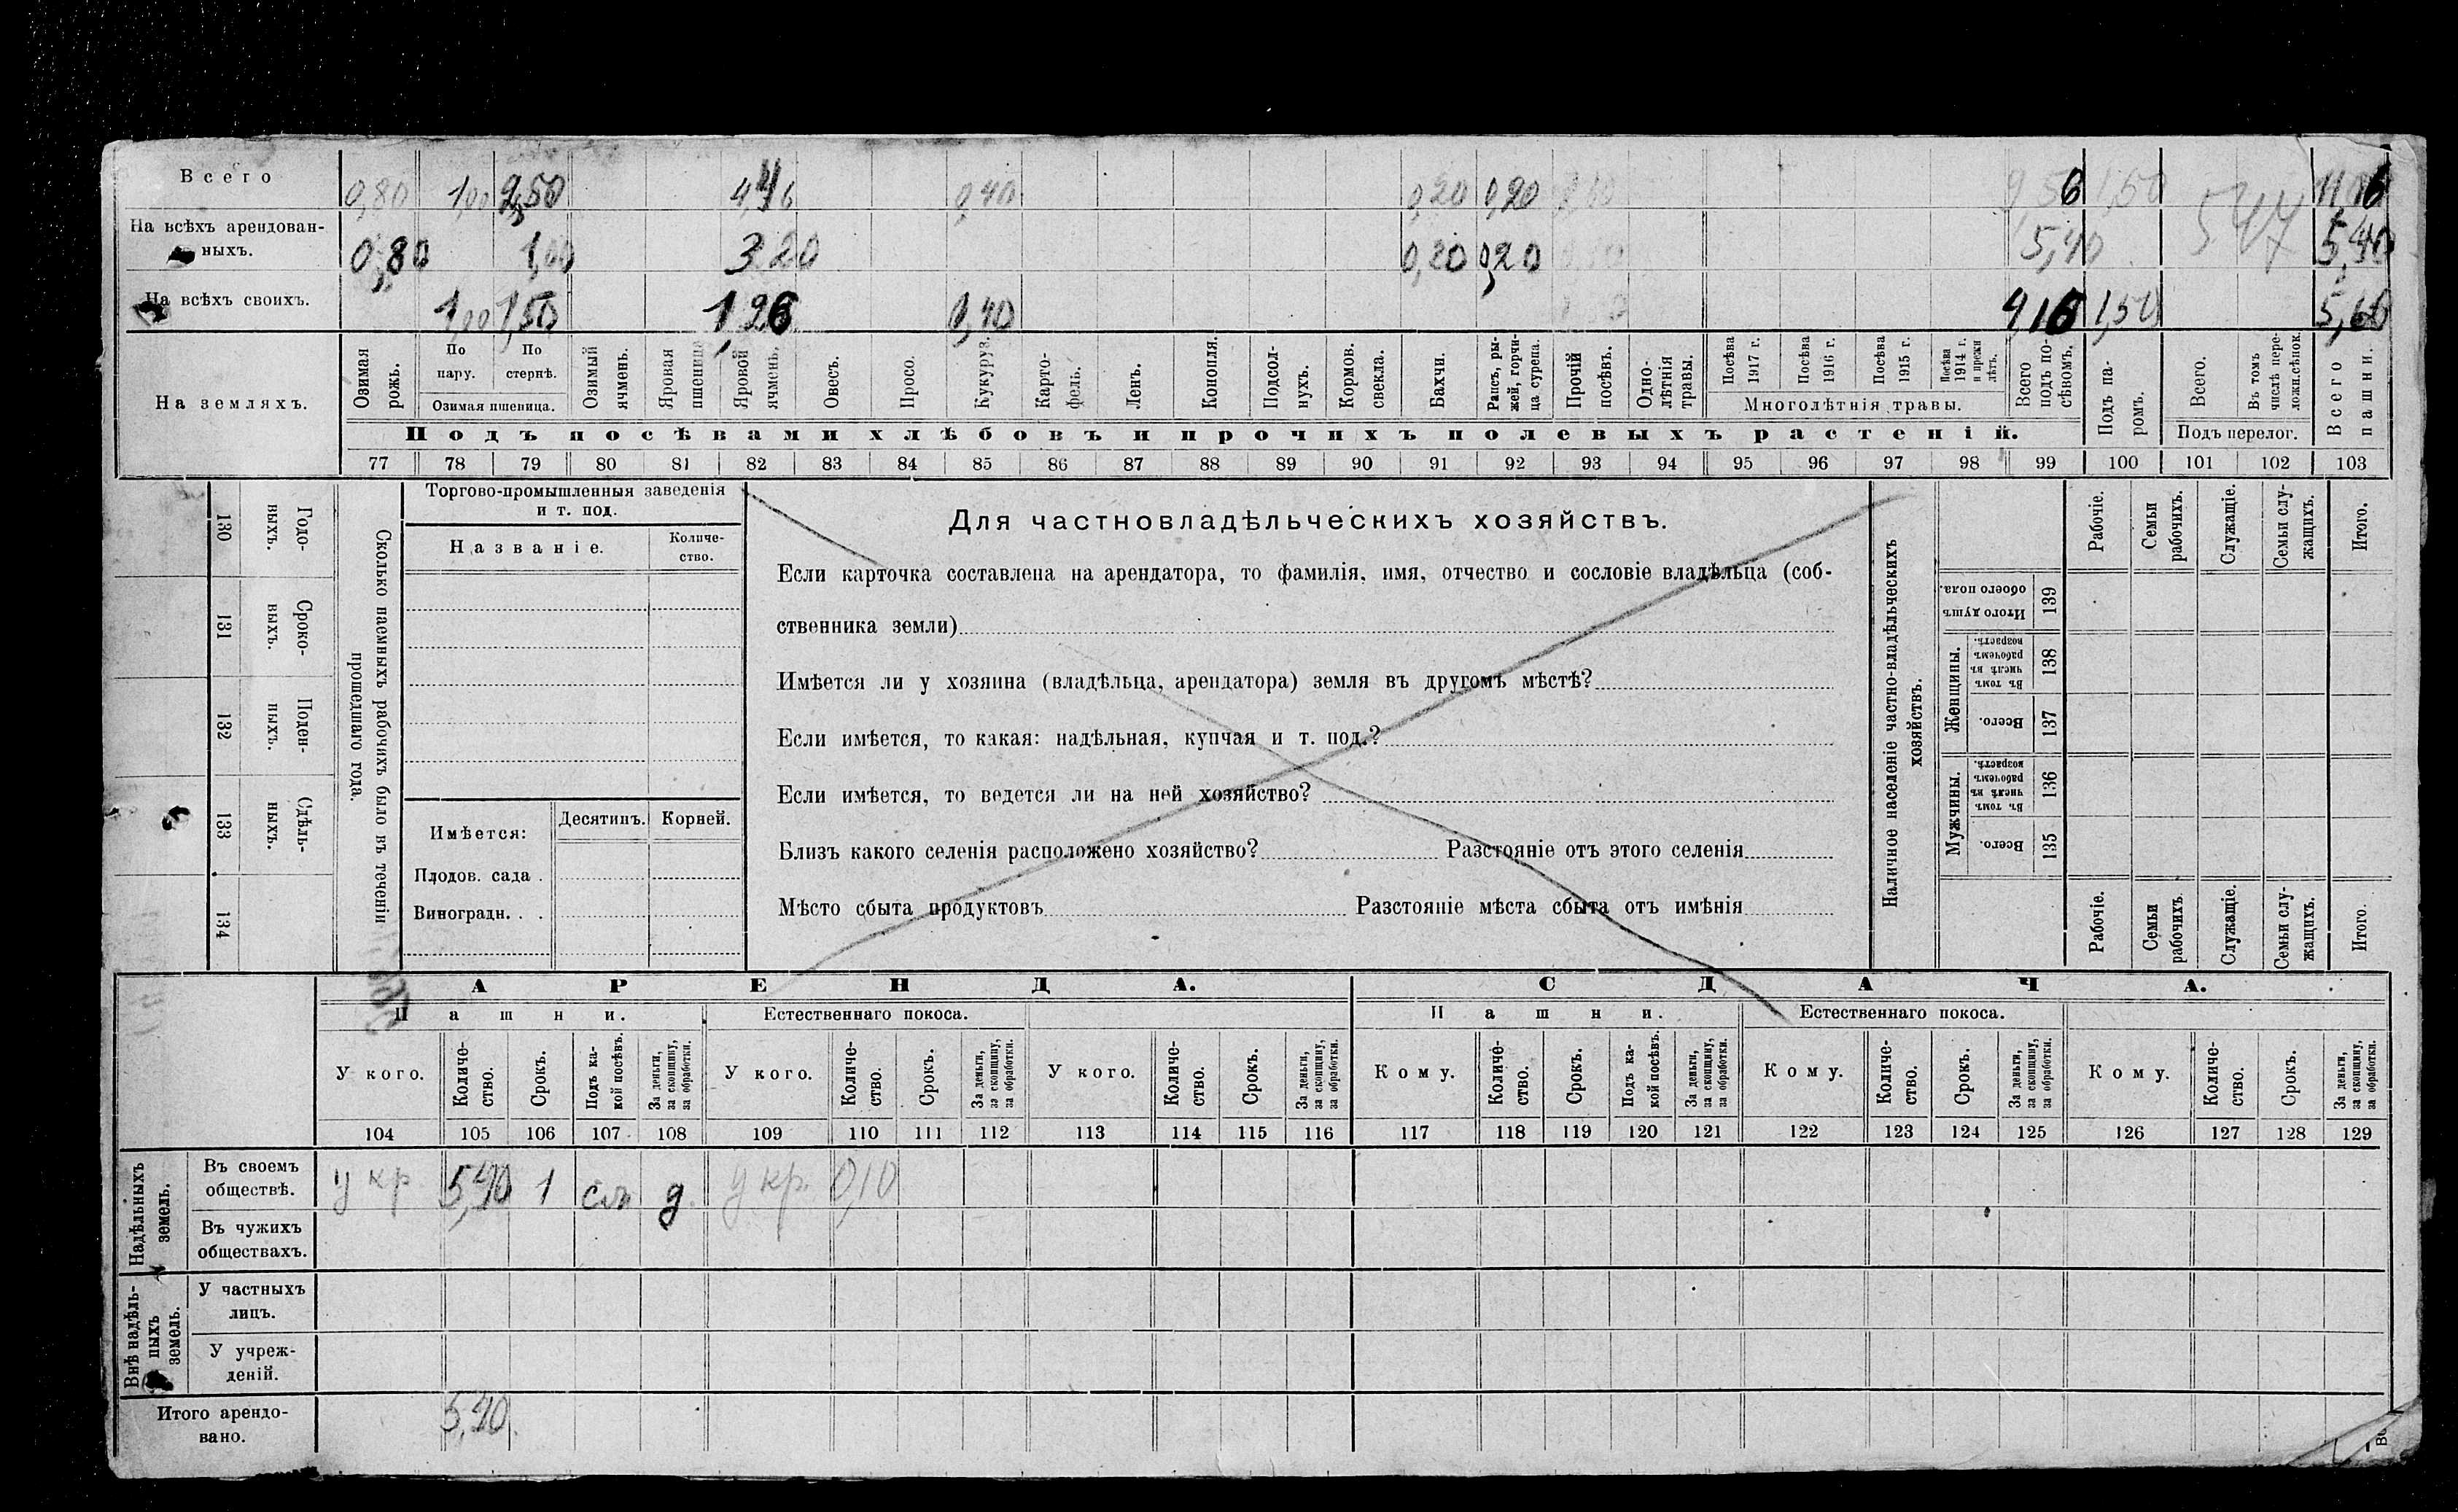 Всего 0,80 1,00 2,50 4,46 0,40 0,20 0,20 9,56 1,50 547 11,06
На всѣхъ арендован-
ныхъ. 0,80 1,00 3 20 0,20 0,20 5,40 5,40
На всѣхъ своихъ. 1,00 1,50 1,26 0,40 4,16 1,50 5,66
На земляхъ.
Озимая рожь.
По пару.
По стернѣ.
Озимая пшеница.
Озимый ячмень.
Яровая пшеница
Яровой ячмень.
Овесъ.
Просо.
Кукуруз.
Карто-
фель.
Ленъ.
Конопля.
Подсол-
нухъ.
Кормов.
свекла.
Бахчи.
Рапсъ, ры-
жей, горчи-
ца сурепа.
Прочій
посѣвъ.
Одно-
лѣтнія
травы.
Посѣва
1917 г.
Посѣва
1916 г.
Посѣва
1915 г.
Посѣва
1914 г.
и прежн
лѣтъ.
Многолѣтнія травы.
Всего
подъ по-
сѣвомъ.
Подъ па-
ромъ.
Всего.
Въ томъ
числѣ пере-
ложн.сѣнок.
Подъ перелог.
Всего
пашни.
Подъ посѣвами хлѣбовъ и прочихъ полевыхъ растеній.
77 78 79 80 81 82 83 84 85 86 87 88 89 90 91 92 93 94 95 96 97 98 99 100 101 102 103
130 Годо-
выхъ.
131 Сроко-
выхъ.
132 Поден-
ныхъ.
133 Сдѣль-
ныхъ.
134
Сколько наемныхъ рабочихъ было въ теченіи
прошедшаго года.
Торгово-промышленныя заведенія
и т. под.
Названіе.
Количе-
ство.
Имѣется:
Десятинъ.
Корней.
Плодов. сада .
Виноградн. . .
Для частновладѣльческихъ хозяйствъ.
Если карточка составлена на арендатора, то фамилія, имя, отчество и сословіе владѣльца (соб-
ственника земли)
Имѣется ли у хозяина (владѣльца, арендатора) земля въ другомъ мѣстѣ?
Если имѣется, то какая: надѣльная, купчая и т. под.?
Если имѣется, то ведется ли на ней хозяйство?
Близъ какого селенія расположено хозяйство? Разстояніе отъ этого селенія
Мѣсто сбыта продуктовъ Разстояніе мѣста сбыта отъ имѣнія
Наличное населеніе частно-владѣльческихъ
хозяйствъ.
Рабочіе.
Семьи
рабочихъ.
Служащіе.
Семьи слу-
жащихъ.
Итого.
Итого душъ
обоего пола.
139
Женщины.
Въ томъ
числѣ въ
рабочемъ
возрастѣ.
138
Всего.
137
Мужчины.
Въ томъ
числѣ въ
рабочемъ
возрастѣ.
136
Всего.
135
Рабочіе.
Семьи
рабочихъ.
Служащіе.
Семьи слу-
жащихъ.
Итого.
АРЕНДА. СДАЧА.
Пашни. Естественнаго покоса. Пашни. Естественнаго покоса.
У кого.
Количе-
ство.
Срокъ.
Подъ ка-
кой посѣвъ.
За деньги,
за скопщину,
за обработки.
У кого.
Количе-
ство.
Срокъ.
За деньги,
за скопщину,
за обработки.
У кого.
Количе-
ство.
Срокъ.
За деньги,
за скопщину,
за обработки.
Кому.
Количе-
ство.
Срокъ.
Подъ ка-
кой посѣвъ.
За деньги,
за скопщину,
за обработки.
Кому.
Количе-
ство.
Срокъ.
За деньги,
за скопщину,
за обработки.
Кому.
Количе-
ство.
Срокъ.
За деньги,
за скопщину,
за обработки.
104 105 106 107 108 109 110 111 112 113 114 115 116 117 118 119 120 121 122 123 124 125 126 127 128 129
Надѣльныхъ
земель.
Въ своемъ
обществѣ. у кр. 5,40 1 д. у кр. 0,10
Въ чужихъ
обществахъ.
Внѣ надѣль-
ныхъ
земель.
У частныхъ
лицъ.
У учреж-
деній.
Итого арендо-
вано. 5,40